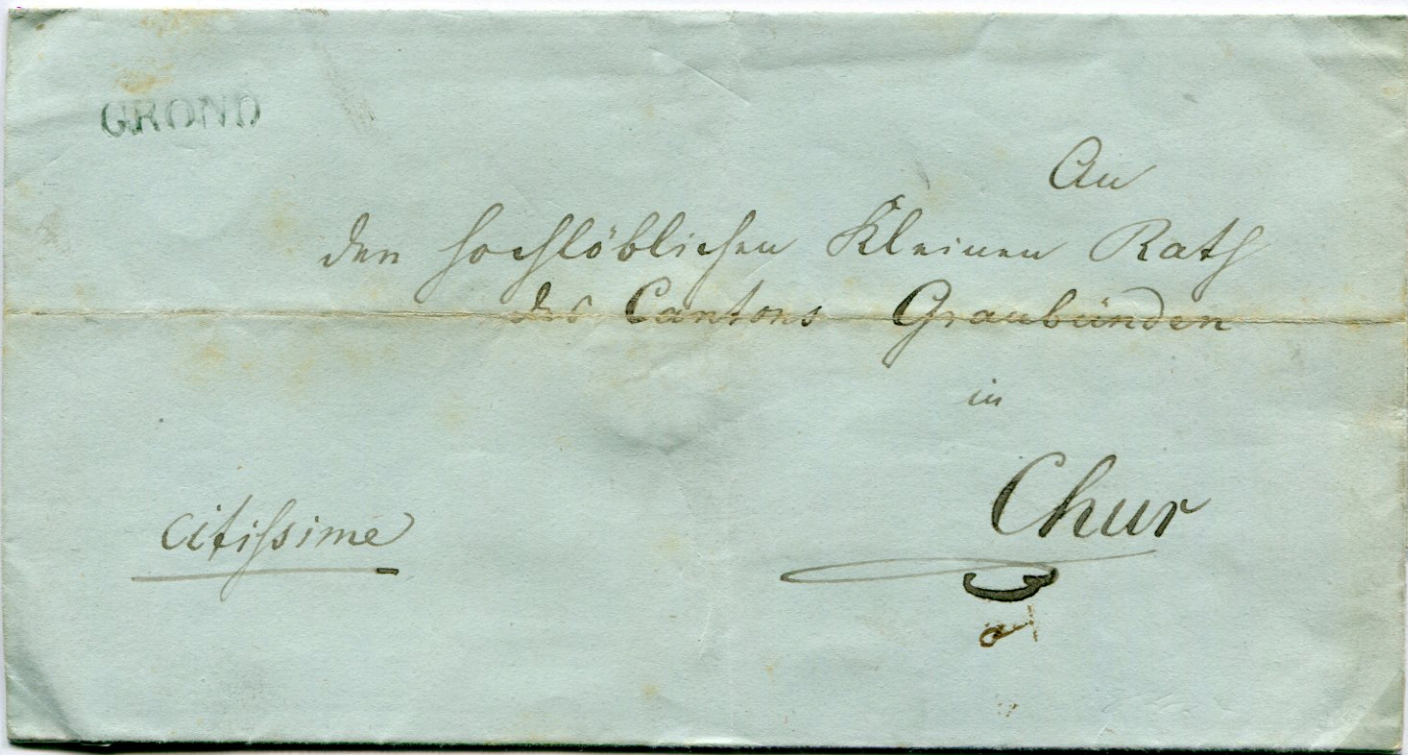 GROND
An
den hochlöblichen Kleinen Rath
des Cantons Graubünden
in
Chur
citissime